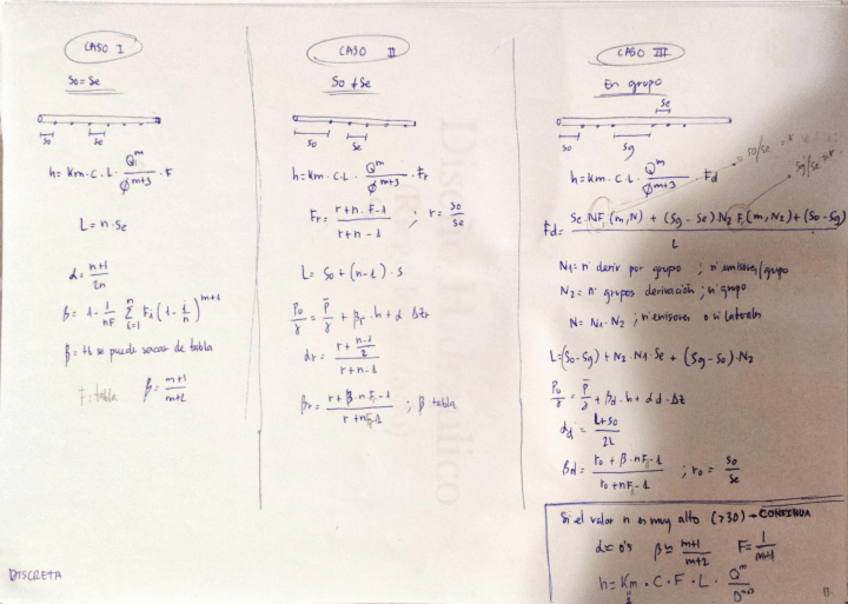 CASO I
So = Se
So
Se
h = Km · C · L · Q^m / Ø^m+3 · F
L = n · Se
α = n+1 / 2n
β = 1 - 1/nF Σ i=1 n Fi (1 - i/n)^m+1
β = tb se puede sacar de tabla
F = tabla β = m+1 / m+2
DISCRETA
CASO II
So ≠ Se
So
Se
h = Km · C · L · Q^m / Ø^m+3 · Fr
Fr = r+n·F-1 / r+n-1 ; r = So / Se
L = So + (n-1) · S
Po/γ = P̄/γ + βr · h + α Δzr
αr = r + n-1/2 / r+n-1
βr = r+β·n·F-1 / r+nF-1 ; β tabla
CASO III
En grupo
Se
So
Sg
So/Se = r
Sg/Se = r
h = Km · C · L · Q^m / Ø^m+3 · Fd
Fd = Se · NF (m,N) + (Sg - Se) N2 F (m,N2) + (So - Sg) / L
N1 = nº deriv por grupo ; nº emisores/grupo
N2 = nº grupos derivación ; nº grupo
N = N1 · N2 ; nº emisores o nº laterales
L = (So - Sg) + N2 · N1 · Se + (Sg - So) · N2
Po/γ = P̄/γ + βd · h + αd · Δz
αd = L+So / 2L
βd = ro + β · nF - 1 / ro + nF - 1 ; ro = So / Se
Si el valor n es muy alto (>30) → CONTINUA
α = 0'5 β ≈ m+1 / m+2 F = 1 / m+1
h = Km · C · F · L · Q^m / D^m+3